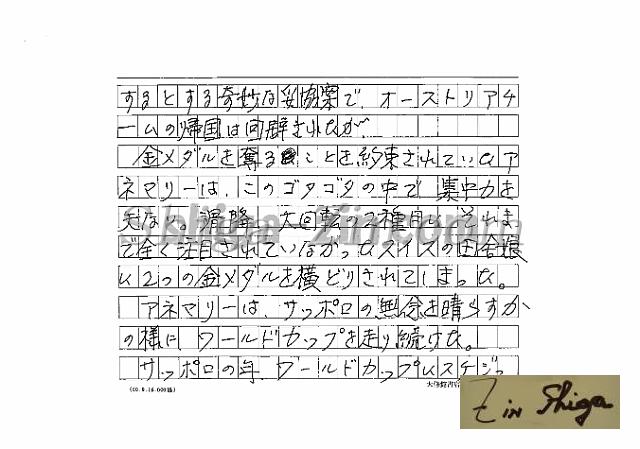 するとする奇妙な妥協案で、オーストリアチ
ームの帰国は回避されたが、
金メダルを奪ることを約束されていたア
ネマリーは、このゴタゴタの中で集中力を
失ない。滑降、大回転の2種目は それま
で全く注目されていなかったスイスの田舎娘
に2つの金メダルを横どりされてしまった。
アネマリーは、サッポロの無念を晴らすか
の様に、ワールドカップを走り続けた。
サッポロの年、ワールドカップはスケジュ
Zin Shiga